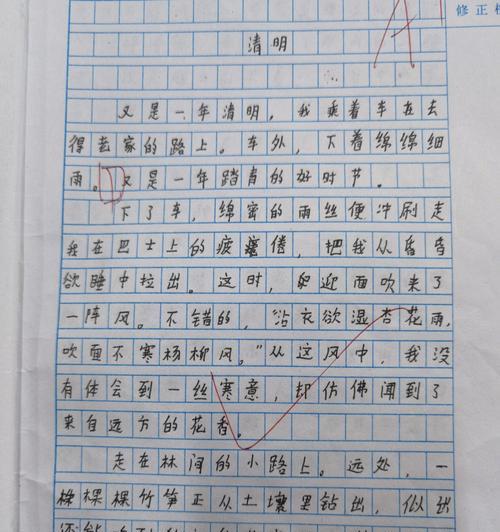 修正栏
A
清明
又是一年清明，我乘着车在去
得老家的路上。车外，下着绵绵细
雨。又是一年踏青的好时节。
下了车，绵密的雨丝便冲刷走
我在巴士上的疲惫倦，把我从昏昏
欲睡中拉出。这时，迎面吹来了
一阵风。不错的，“沾衣欲湿杏花雨，
吹面不寒杨柳风。”从这风中，我没
有体会到一丝寒意，却仿佛闻到了
来自远方的花香。
走在林间的小路上。远处，一
棵棵竹笋正从土壤里钻出，似出